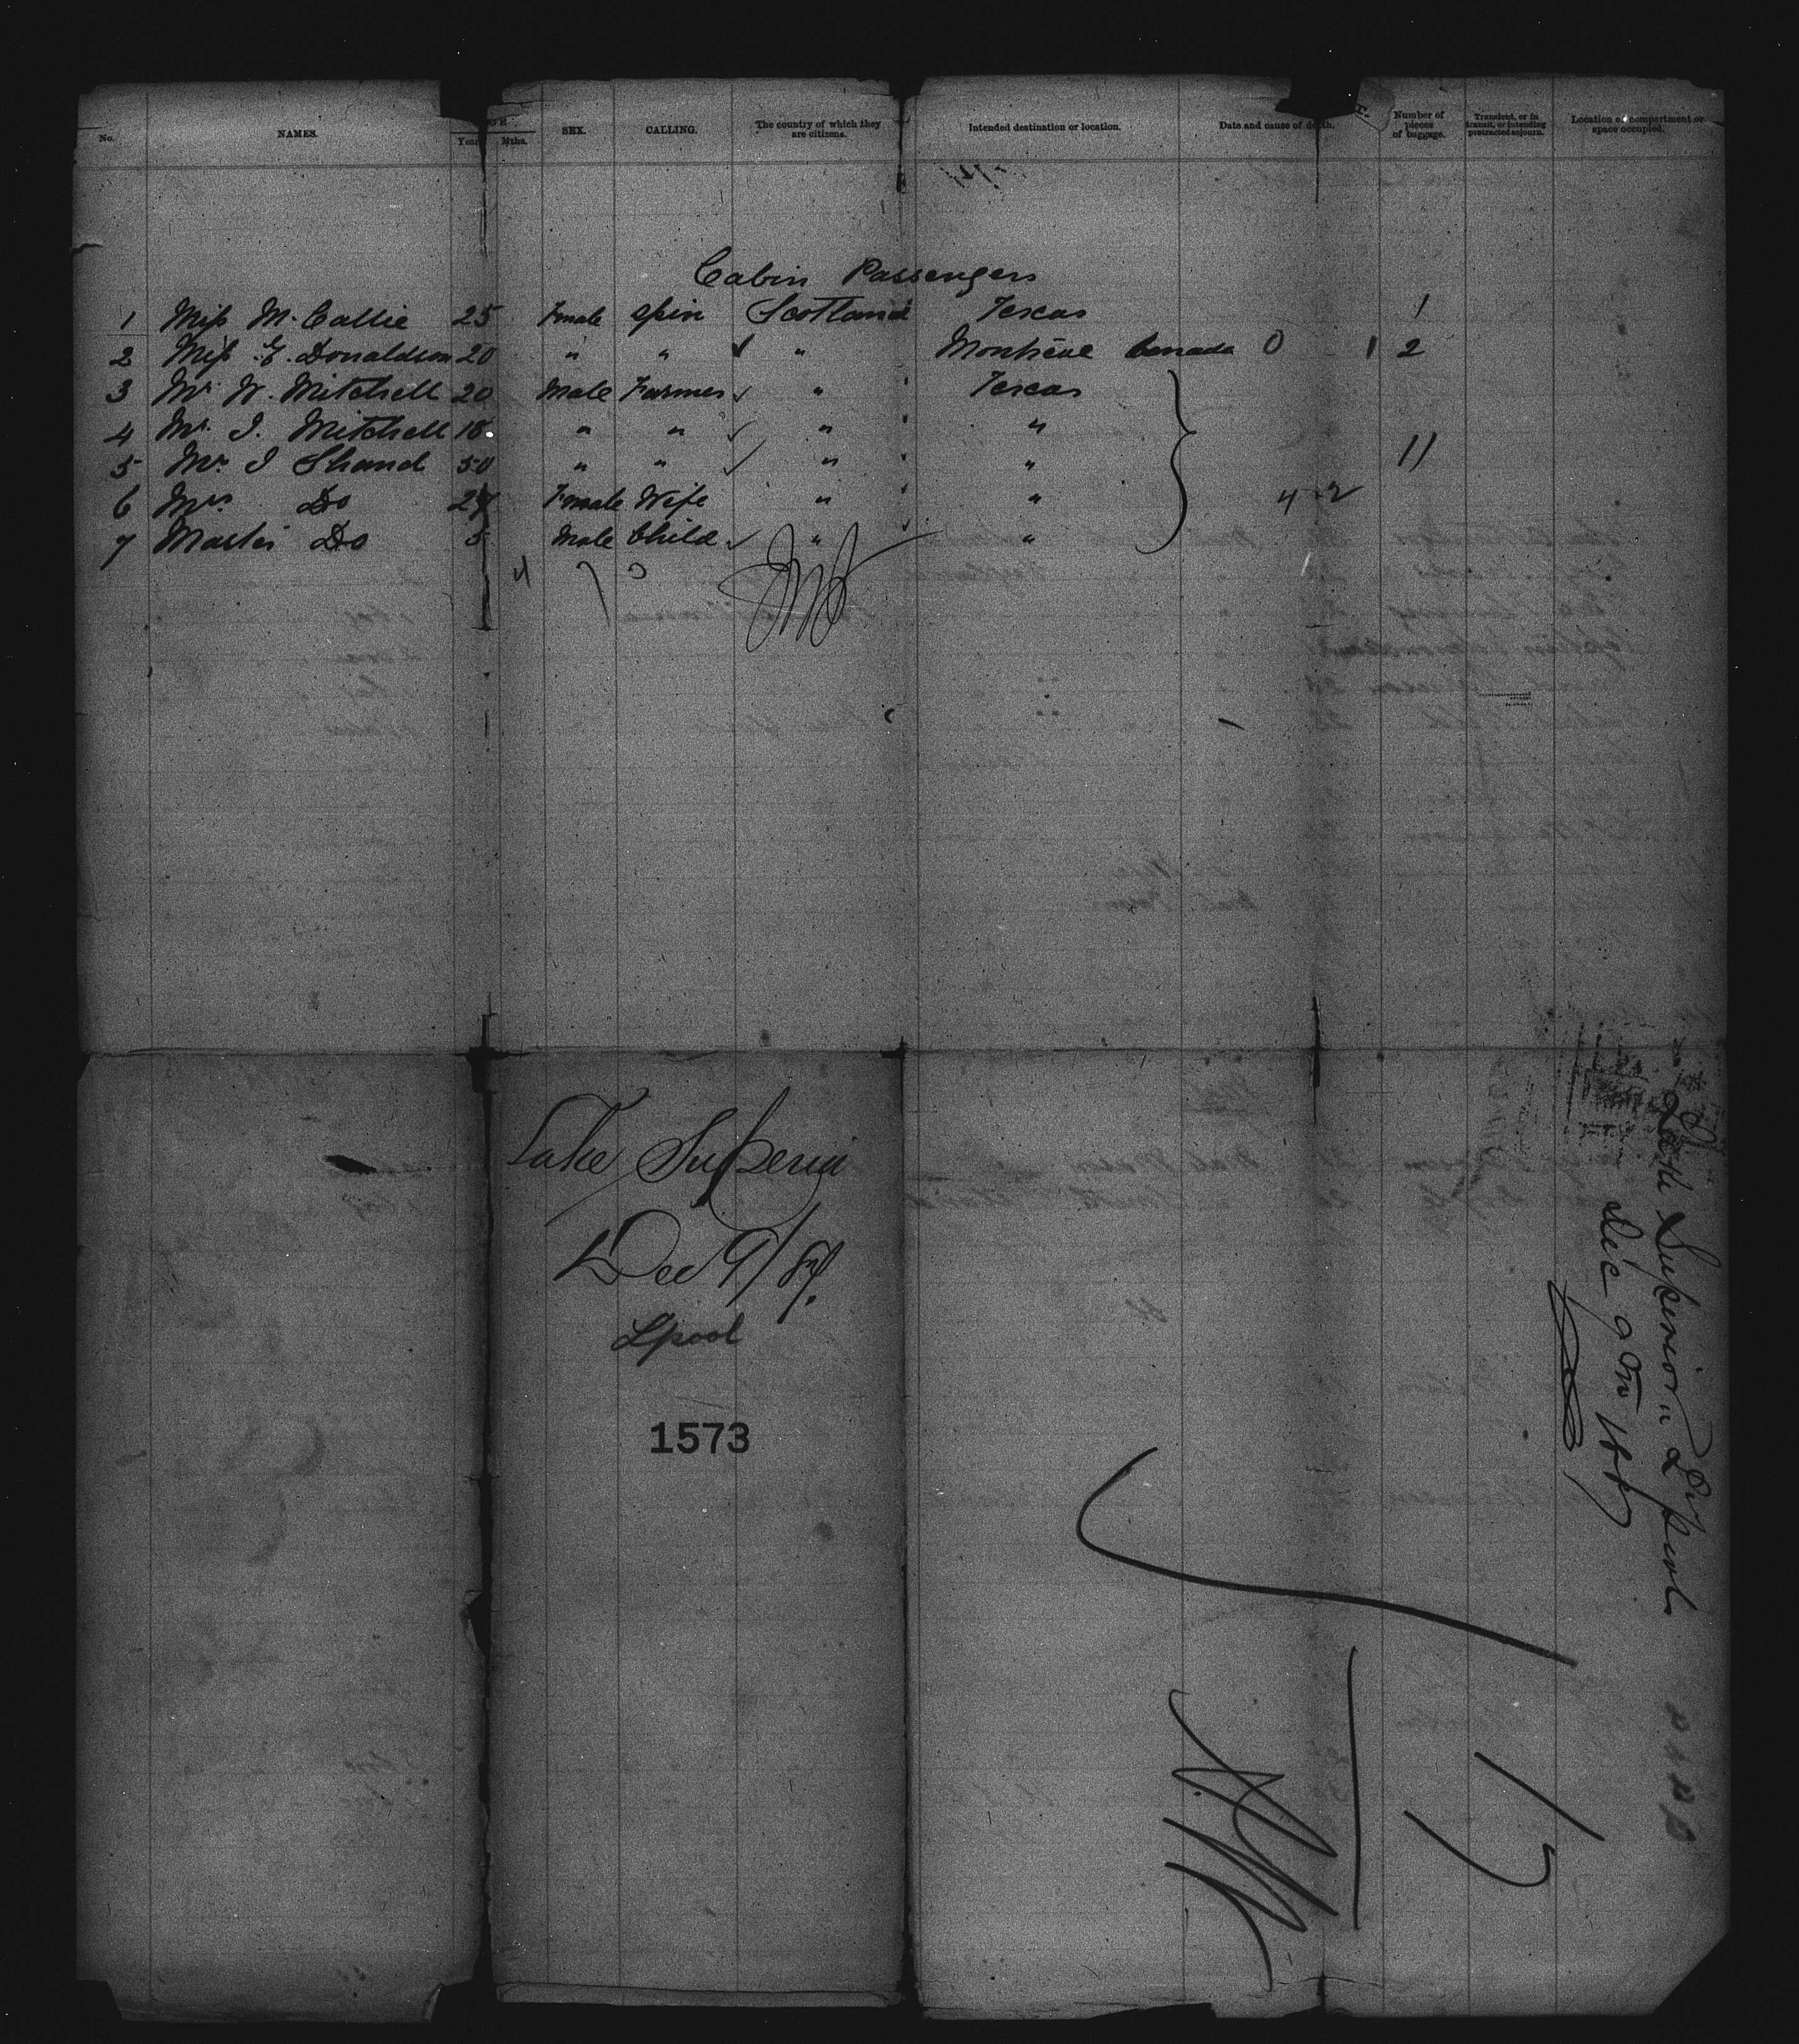 No. NAMES. Years Mths. SEX. CALLING. The country of which they are citizens. Intended destination or location. Date and cause of death. Number of pieces of baggage. Transient, or in transit, or intending protracted sojourn. Location of compartment or space occupied.
Cabin Passengers
1 Miss M. Callie 25 Female Spin Scotland Texas 1
2 Miss G. Donaldson 20 " " " Canada 0 1 2
3 Mr. W. Mitchell 20 Male Farmer " Texas
4 Mr. I. Mitchell 18 " " " "
5 Mr. I Shand 50 " " " " 11
6 Mrs. Do Female Wife " " 4
7 Master Do Male Child " "
Lake Superior
Dec 9/87.
Lpool
1573
Lake Superior
Dec 9th 1887